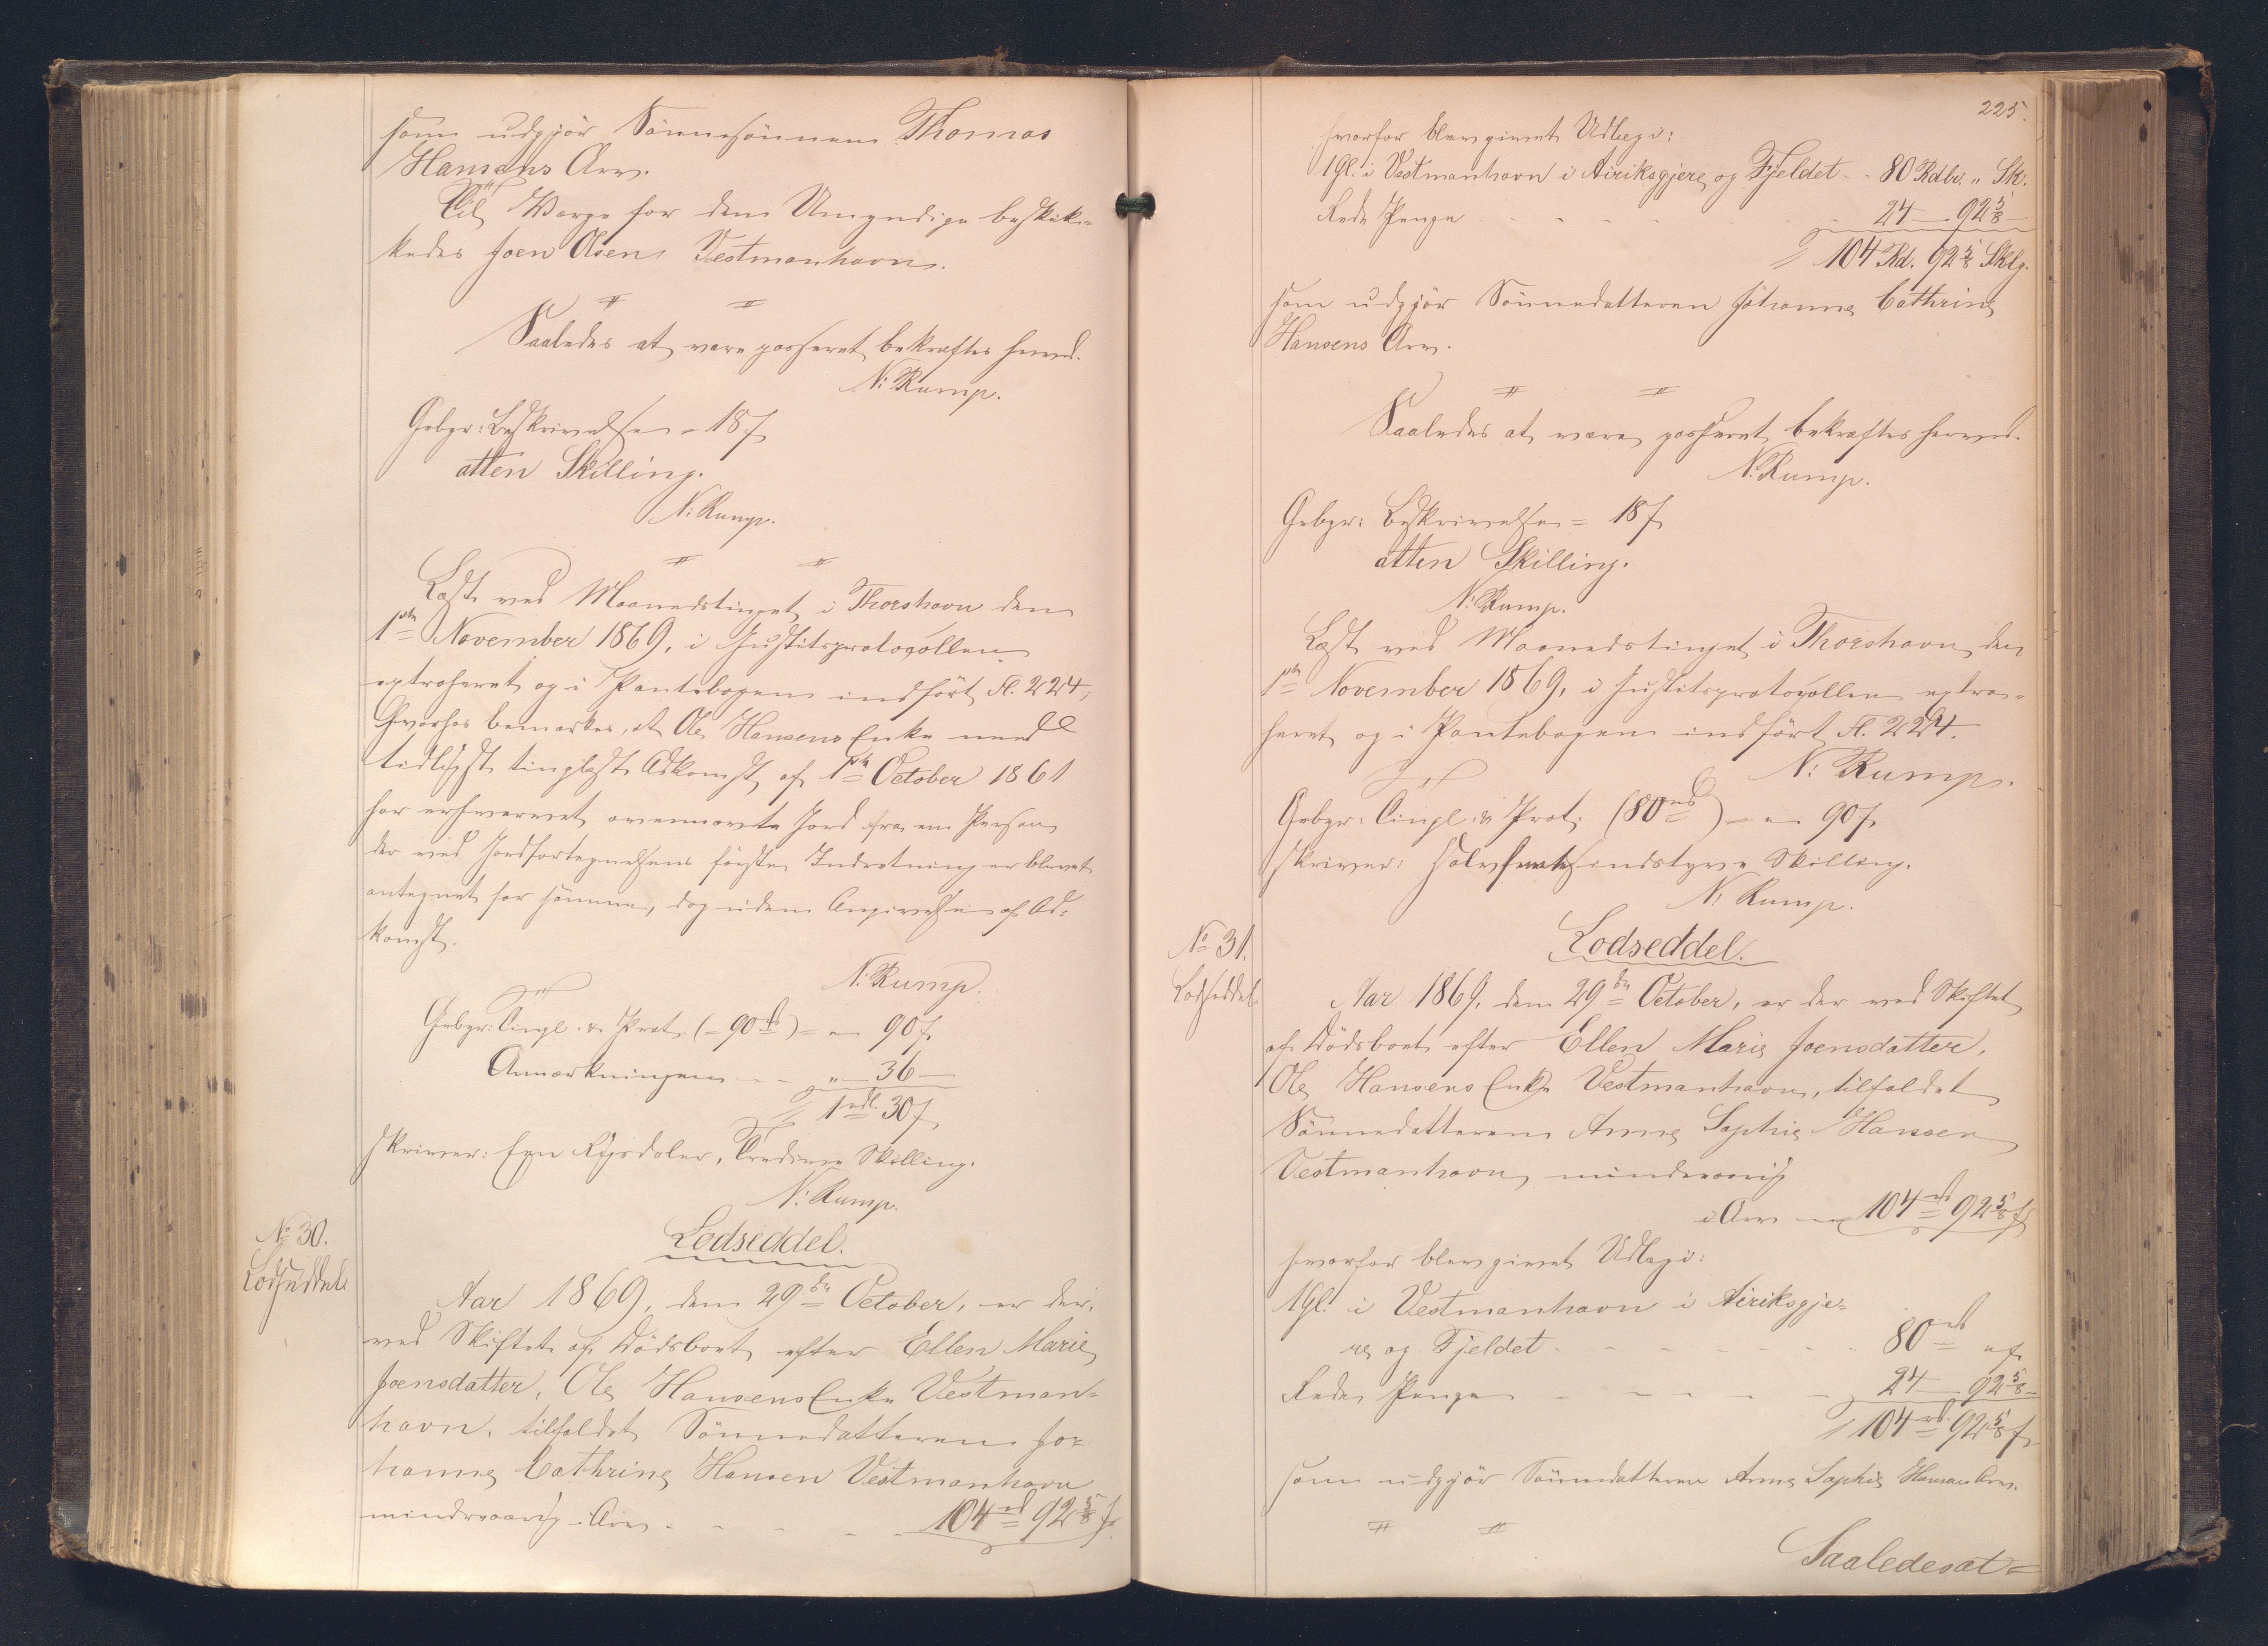 som udgjør Sønnesønnen Thomas
Hansens Arv.
Til Værge for den Umyndige beskik-
kedes Joen Olsen Vestmanhavn.
Saaledes at være passeret bekræftes herved.
N: Rump.
Gebyr: Beskrivelsen = 18 s
atten Skilling.
N: Rump.
Læst ved Maanedstinget i Thorshavn den
1ste November 1869, i Justitsprotocollen
extraheret og i Pantebogen indført Fl. 224,
hvorhos bemærkes, at Ole Hansens Enke med
tidligst tinglæst Adkomst af 1ste October 1861
har erhvervet ovennævnte Jord fra en Person
der ved Jordfortegnelsens første Indretning er blevet
antegnet for samme, dog uden Angivelse af Ad-
komst.
N: Rump.
Gebyr: Tingl. & Prot. (= 90 rd) = " 90 s
Anmærkningen - - " — 36 —
1 rdl. 30 s
skriver: Een Rigsdaler, Tredive Skilling.
N: Rump.
No 30.
Lodseddel.
Lodseddel.
Aar 1869, den 29de October, er der
ved Skiftet af Dødsboet efter Ellen Marie
Joensdatter, Ole Hansens Enke Vestman-
havn, tilfaldet Sønnedatteren Jo-
hanne Cathrine Hansen Vestmanhavn
mindreaarig i Arv - - - - 104 rd 92 5/8 s
225.
hvorfor blev givet Udlæg i:
1 Gl. i Vestmanhavn i Airiksgjere og Fjeldet - - 80 Rdlr. " Sk.
Rede Penge - - - - 24 — 92 5/8 —
104 Rd. 92 5/8 Sklg.
som udgjør Sønnedatteren Johanne Cathrine
Hansens Arv.
Saaledes at være passeret bekræftes herved.
N. Rump.
Gebyr: Beskrivelsen = 18 s
atten Skilling.
N: Rump.
Læst ved Maanedstinget i Thorshavn den
1ste November 1869, i Justitsprotocollen extra-
heret og i Pantebogen indført Fl. 224.
N: Rump.
Gebyr: Tingl. & Prot. (80 rd) = " 90 s
skriver: Halvfemtesindstyve Skilling.
N: Rump.
No 31.
Lodseddel.
Lodseddel.
Aar 1869, den 29de October, er der ved Skiftet
af Dødsboet efter Ellen Marie Joensdatter,
Ole Hansens Enke Vestmanhavn, tilfaldet
Sønnedatteren Anne Sophie Hansen
Vestmanhavn, mindreaarig
i Arv — 104 rd 92 5/8 s
hvorfor blev givet Udlæg i:
1 Gl. i Vestmanhavn i Airiksgje-
re og Fjeldet - - - - - - - 80 rd " s
Rede Penge - - - - - 24 — 92 5/8 —
104 rd. 92 5/8 s
som udgjør Sønnedatteren Anne Sophie Hansens Arv.
Saaledes at =